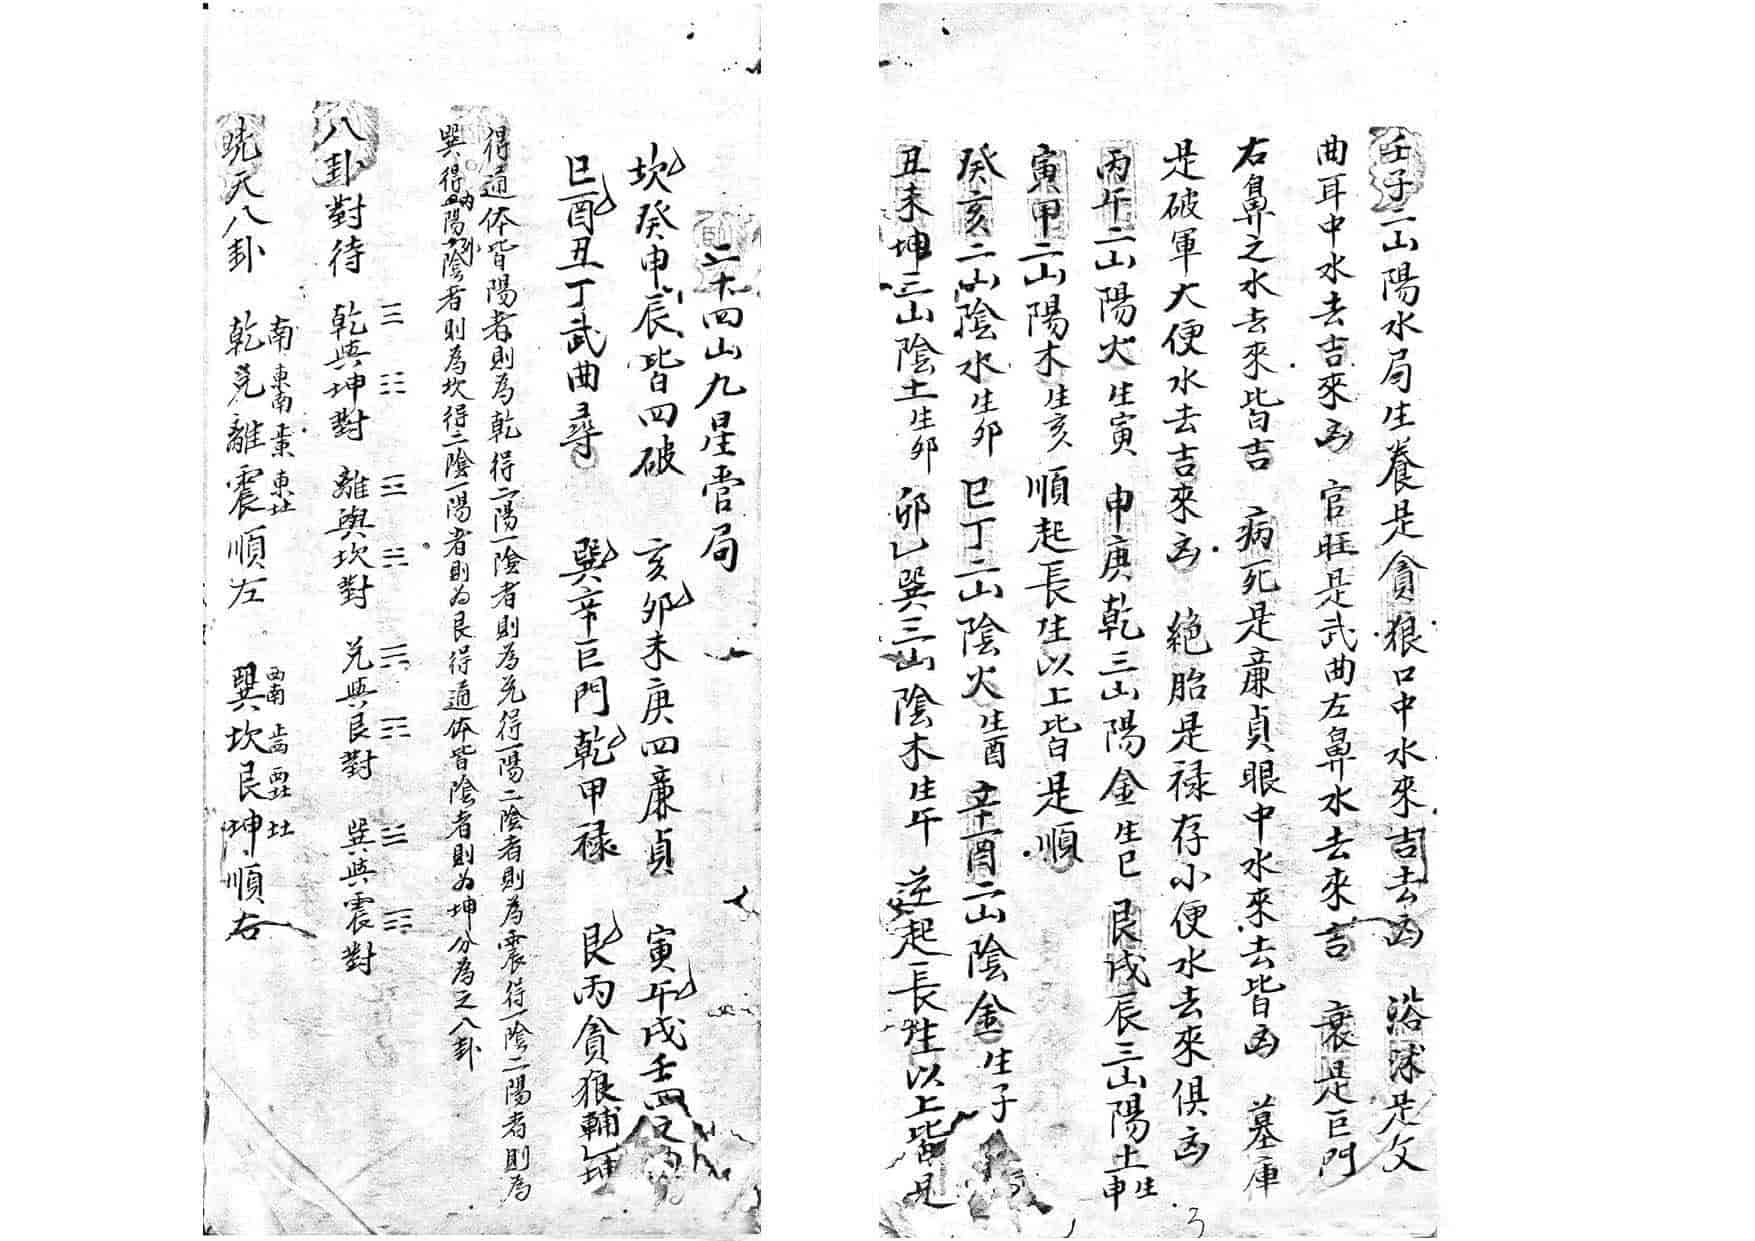 壬子二山陽水局生養是貪狼口中水來吉去凶 浴沐是文
曲耳中水去吉來凶 官旺是武曲左鼻水去來吉 衰是巨門
右鼻之水去來皆吉 病死是廉貞眼中水來去皆凶 墓庫
是破軍大便水去吉來凶 絕胎是禄存小便水去來俱凶
丙午二山陽火生寅 申庚乾三山陽金生巳 艮戌辰三山陽土生申
寅甲二山陽木生亥 順起長生以上皆是順
癸亥二山陰水生卯 巳丁二山陰火生酉 辛酉二山陰金生子
丑未坤三山陰土生卯 卯乙巽三山陰木生午 逆起長生以上皆是
二十四山九星管局
坎癸申辰皆四破 亥卯未庚四廉貞 寅午戌壬四文
巳酉丑丁武曲尋 巽辛巨門乾甲禄 艮丙貪狼輔乙坤
得通体皆陽者則為乾得二陽一陰者則為兑得一陽二陰者則為震得一陰二陽者則為
巽得內陽外陰者則為坎得二陰一陽者則为艮得通体皆陰者則为坤分為之八卦
八卦對待 乾與坤對 ☰ ☷ 離與坎對 ☲ ☵ 兑與艮對 ☱ ☶ 巽與震對 ☴ ☳
南 東南 東 東北 西南 正西 西北 北
先天八卦 乾兑離震順左 巽坎艮坤順右
3